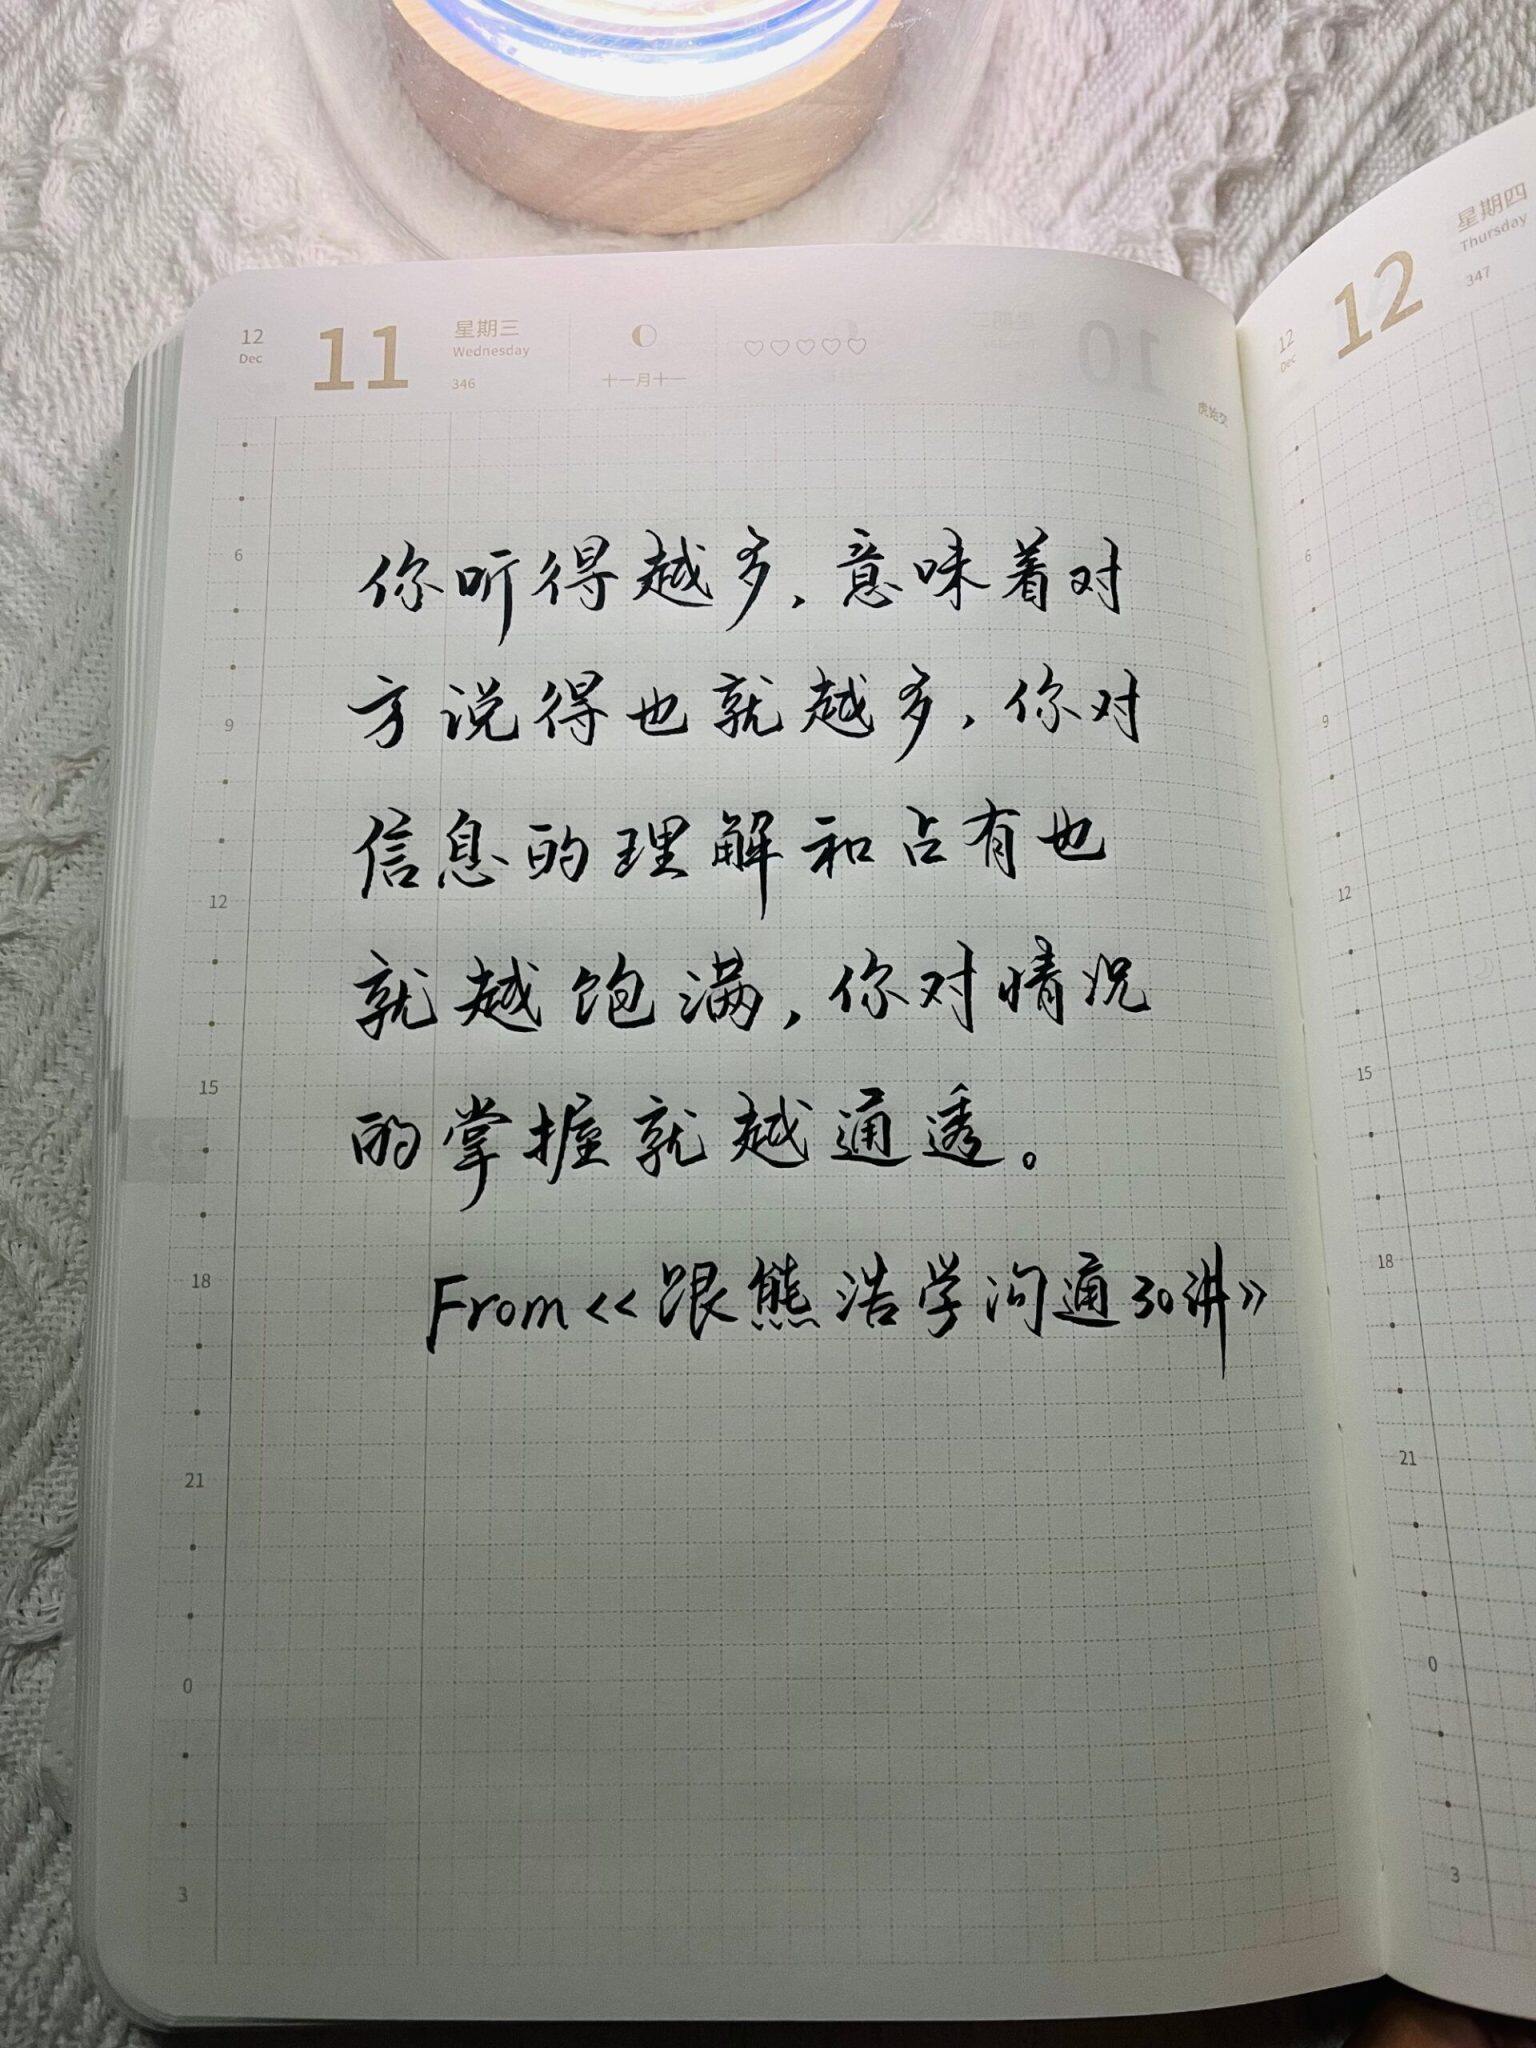 12
Dec
11
星期三
Wednesday
346
十一月十一
虎始交
你听得越多,意味着对
方说得也就越多,你对
信息的理解和占有也
就越饱满,你对情况
的掌握就越通透。
From《跟熊浩学沟通30讲》
6
9
12
15
18
21
0
3
12
Dec
12
星期四
Thursday
347
6
9
12
15
18
21
0
3